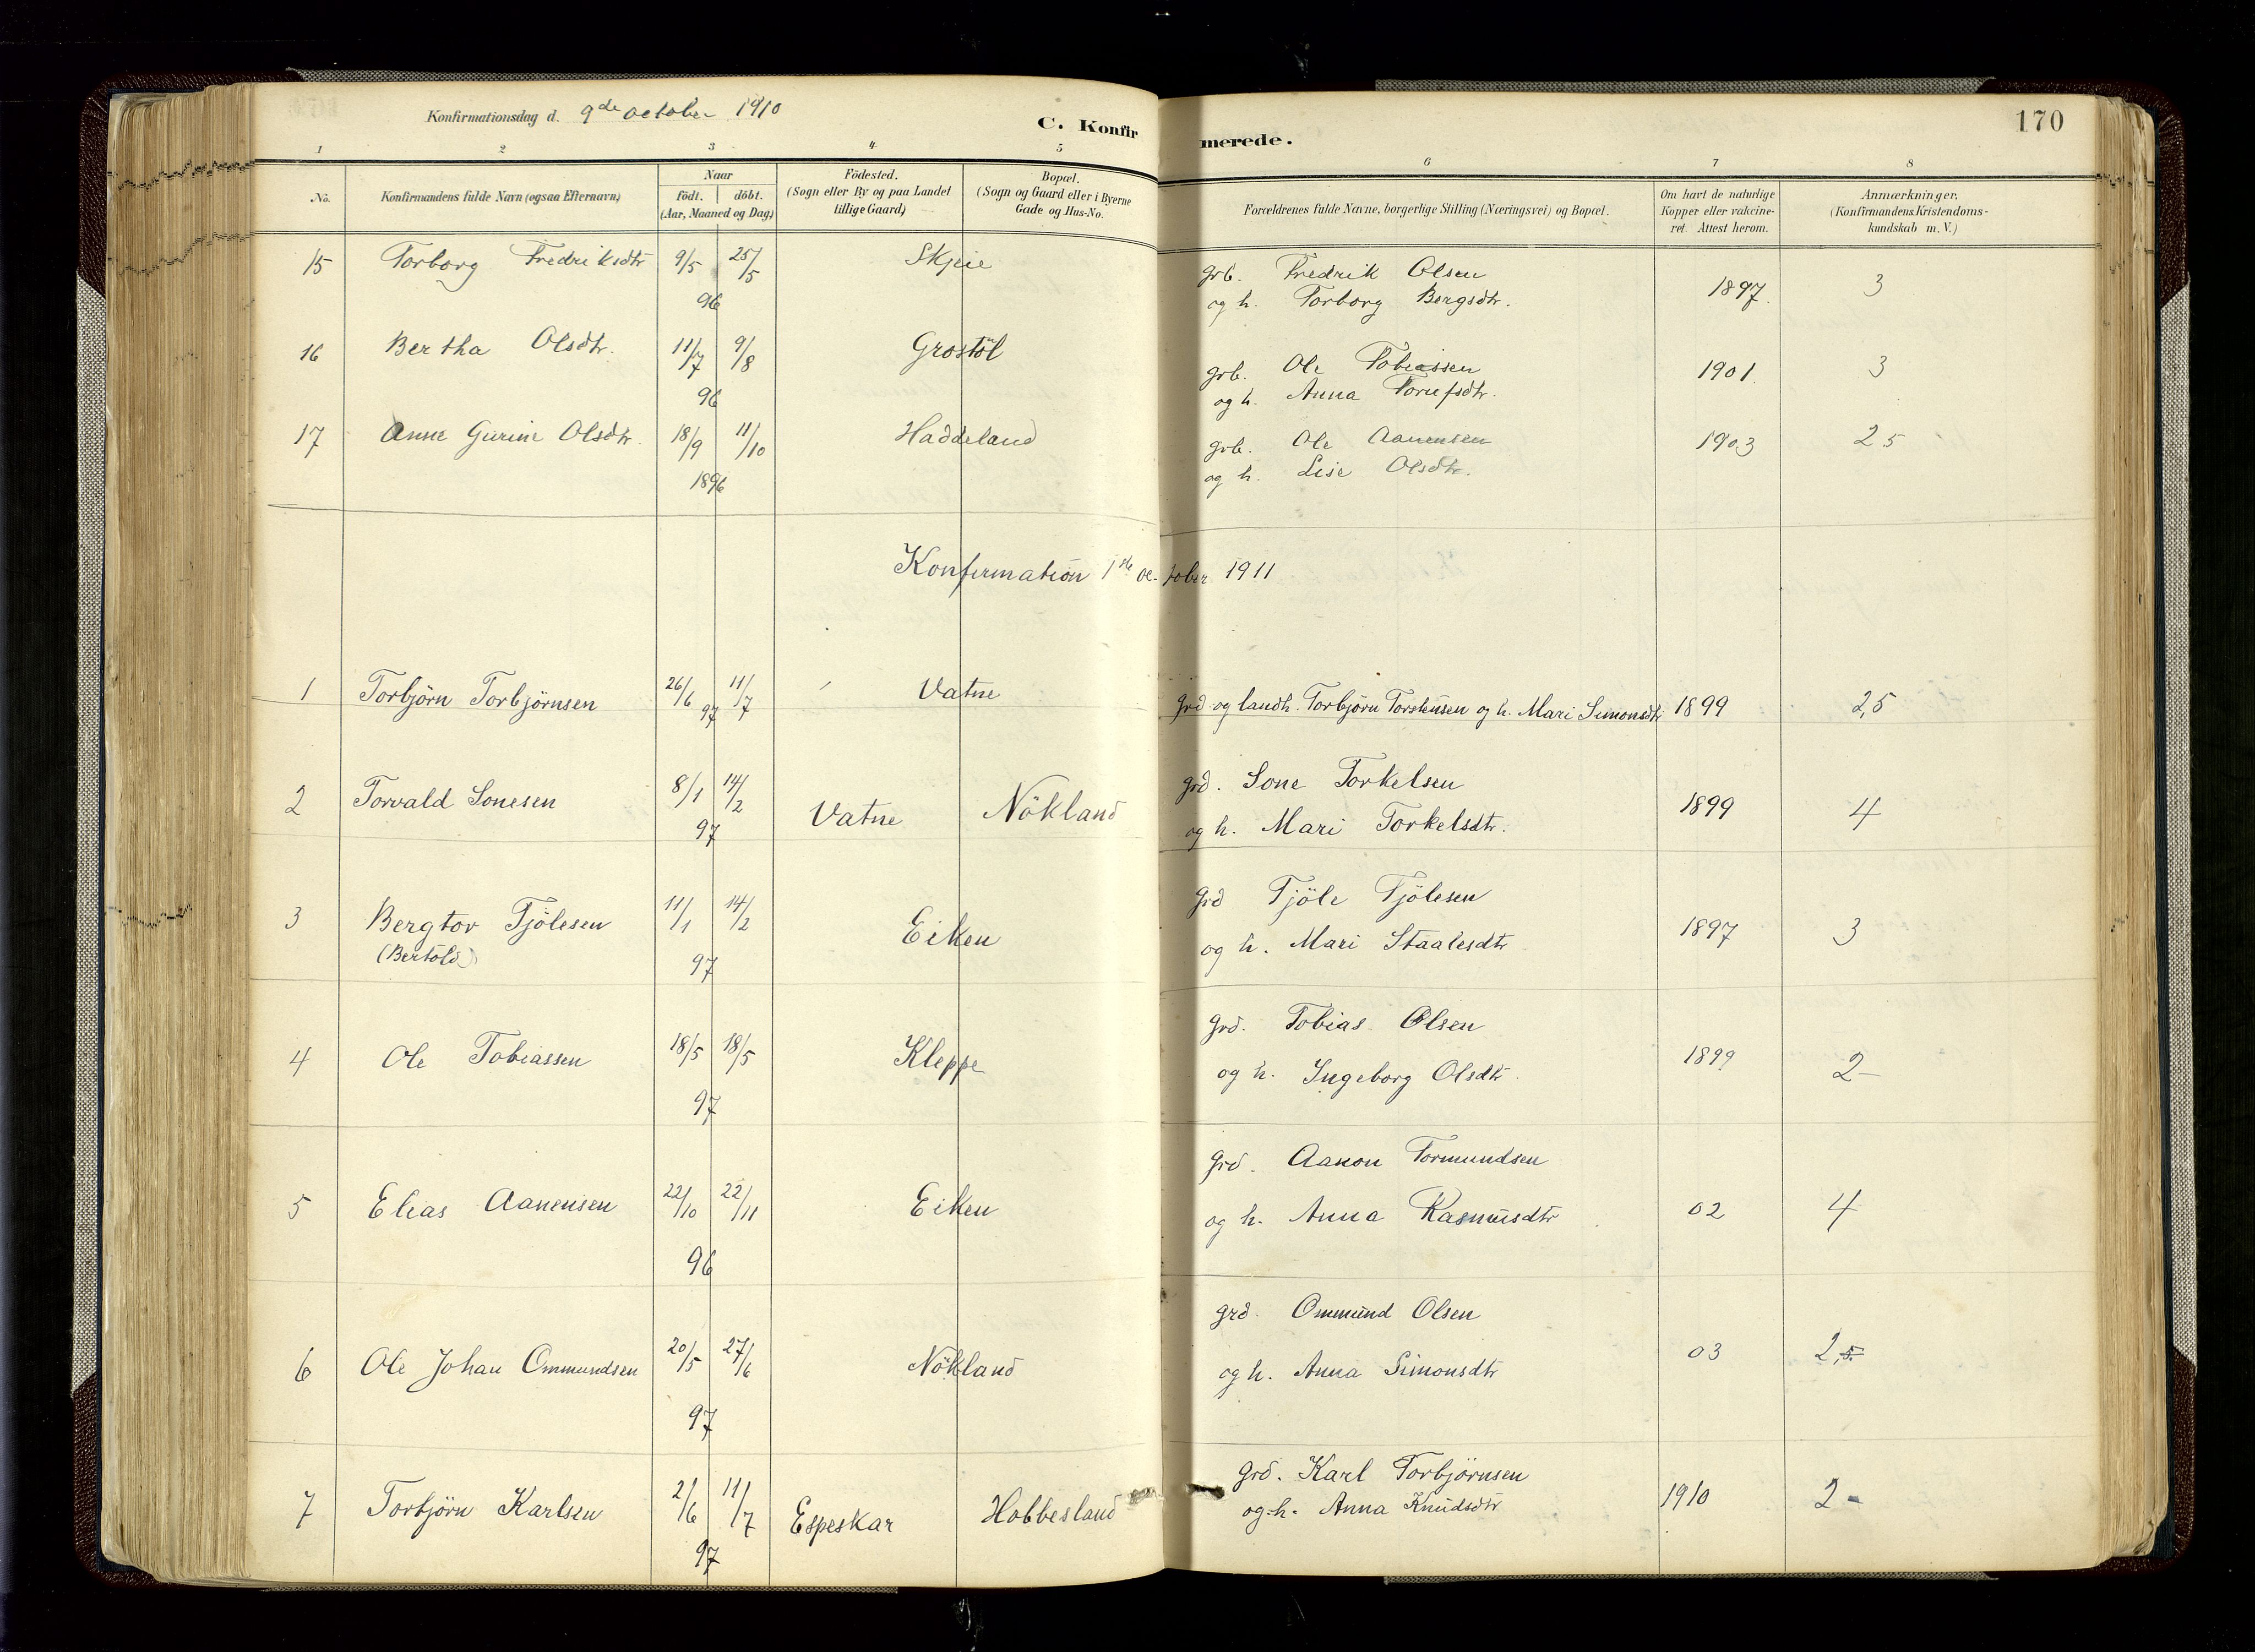 Konfirmationsdag d. 9de october 1910
C. Konfirmerede.
170
1 2 3 4 5 6 7 8
No. Konfirmandens fulde Navn (ogsaa Efternavn) Naar födt. döbt. (Aar, Maaned og Dag) Födested. (Sogn eller By og paa Landet tillige Gaard) Bopæl. (Sogn og Gaard eller i Byerne Gade og Hus-No. Forældrenes fulde Navne, borgerlige Stilling (Næringsvei) og Bopæl. Om havt de naturlige Kopper eller vakcineret. Attest herom. Anmærkninger. (Konfirmandens Kristendomskundskab m. V.)
15 Torborg Fredriksdtr 9/5 25/5 Skjeie grb. Fredrik Olsen 1897. 3
96 og h. Torborg Bergsdtr.
16 Bertha Olsdtr. 11/7 9/8 Grostöl grb. Ole Tobiassen 1901. 3
96 og h. Anna
17 Anne Gurine Olsdtr. 18/9 11/10 Haddeland grb. Ole Aanensen 1903 25
1896 og h. Lise Olsdtr.
Konfirmation 1ste october 1911
1 Torbjörn Torbjörnsen 26/6 11/7 97 Vatne Grd og landh. Torbjörn Torstensen og h. Mari Simonsdtr 1899 2,5
2 Torvald Sonesen 8/1 14/2 Vatne Nökland grd. Sone Torkelsen 1899 4
97 og h. Mari Torkelsdtr.
3 Bergtor Tjölesen 11/1 14/2 Eiken Grd Tjöle Tjölesen 1897 3
(Bertold) 97 og h. Mari Staalesdtr
4 Ole Tobiassen 18/5 18/5 Kleppe Grd. Tobias Olsen 1899 2-
97 og h. Ingeborg Olsdtr.
5 Elias Aanensen 22/10 22/11 Eiken Grd. Aanon Tormundsen 02 4
96 og h. Anna Rasmusdtr
6 Ole Johan Ommundsen 20/5 27/6 Nökland grd. Ommund Olsen 03 2,5
97 og h. Anna Simonsdtr
7 Torbjörn Karlsen 2/6 11/7 Espeskar Hobbesland Grd. Karl Torbjörnsen 1910 2-
97 og h. Anna Knudsdtr